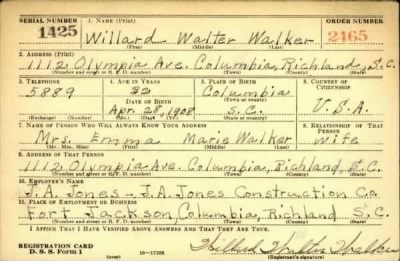 SERIAL NUMBER 1. NAME (Print) ORDER NUMBER
1425 Willard Walter Walker 2465
(First) (Middle) (Last)
2. ADDRESS (Print)
1112 Olympia Ave. Columbia, Richland, S.C.
(Number and street or R. F. D. number) (Town) (County) (State)
3. TELEPHONE 4. AGE IN YEARS 5. PLACE OF BIRTH 6. COUNTRY OF CITIZENSHIP
5889 32 Columbia
DATE OF BIRTH (Town or county)
Apr. 28, 1908 S.C. U.S.A.
(Exchange) (Number) (Mo.) (Day) (Yr.) (State or country)
7. NAME OF PERSON WHO WILL ALWAYS KNOW YOUR ADDRESS 8. RELATIONSHIP OF THAT PERSON
Mrs. Emma Marie Walker Wife
(Mr., Mrs., Miss) (First) (Middle) (Last)
9. ADDRESS OF THAT PERSON
1112 Olympia Ave. Columbia, Richland, S.C.
(Number and street or R. F. D. number) (Town) (County) (State)
10. EMPLOYER'S NAME
J.A. Jones - J.A. Jones Construction Co.
11. PLACE OF EMPLOYMENT OR BUSINESS
Fort Jackson, Columbia, Richland S.C.
(Number and street or R. F. D. number) (Town) (County) (State)
I AFFIRM THAT I HAVE VERIFIED ABOVE ANSWERS AND THAT THEY ARE TRUE.
REGISTRATION CARD
D. S. S. Form 1 16-17105 Willard Walter Walker
(over) (Registrant's signature)